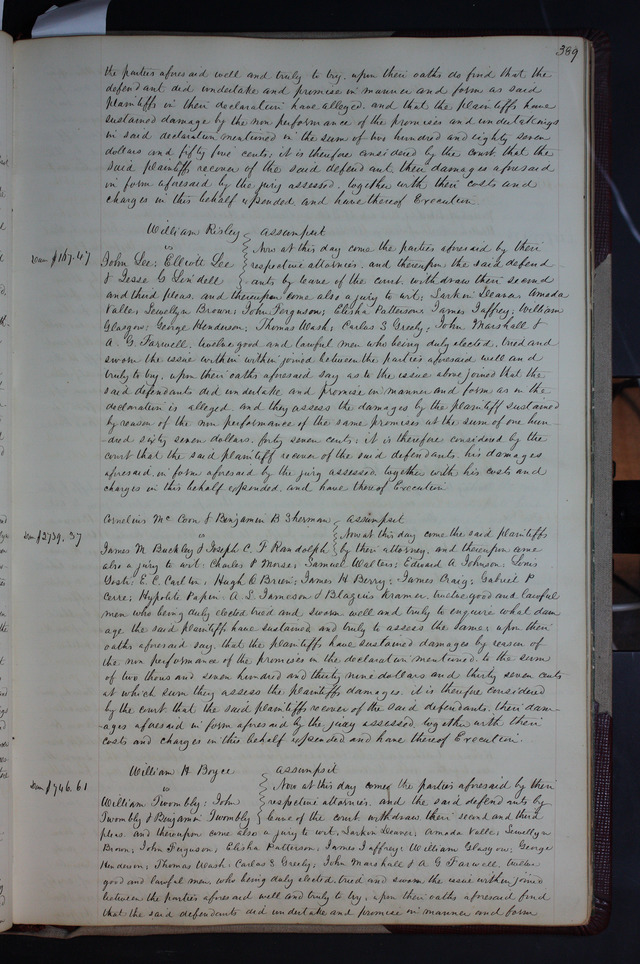 389
the parties aforesaid well and truly to try, upon their oaths do find that the
defendant did undertake and promise in manner and form as said
plaintiffs in their declaration have alleged, and that the plaintiffs have
sustained damage by the non performance of the promises and undertakings
in said declaration mentioned in the sum of two hundred and eighty seven
dollars and fifty five cents; it is therefore considered by the court that the
said plaintiffs recover of the said defendant their damages aforesaid
in form aforesaid by the jury assessed, together with their costs and
charges in this behalf expended and have thereof Execution.
William Risley assumpsit
vs Now at this day come the parties aforesaid by their
Dam $167.47 John Lee; Elliott Lee respective attornies, and thereupon the said defend
& Jesse G Lindell ants by leave of the court withdraw their second
and third pleas, and thereupon come also a jury to wit; Larkin Deaver; Amada
Valle; Lewellyn Brown; John Ferguson; Elisha Patterson; James Jaffrey; William
Glasgow; George Henderson; Thomas Wash; Carlos S Greely; John Marshall &
A. G. Farwell, twelve good and lawful men who being duly elected, tried and
sworn the issue within within joined between the parties aforesaid well and
truly to try, upon their oaths aforesaid say as to the issue above joined that the
said defendants did undertake and promise in manner and form as in the
declaration is alleged, and they assess the damages by the plaintiff sustained
by reason of the non performance of the same promises at the sum of one hun
dred sixty seven dollars, forty seven cents; it is therefore considered by the
court that the said plaintiff recover of the said defendants, his damages
aforesaid in form aforesaid by the jury assessed, together with his costs and
charges in this behalf expended, and have thereof Execution
Cornelius Mc Coon & Benjamin B Sherman assumpsit
Dam $2739.37 vs Now at this day come the said plaintiffs
James M Buckley & Joseph C. F Randolph by their attorney, and thereupon came
also a jury to wit; Charles P Morse; Samuel Walters; Edward A Johnson; Louis
E. C. Carlton; Hugh O Brien; James H Berry; James Craig; Gabriel P
Cerre; Hypolite Papin; A. S. Jameson & Blazius Kramer, twelve good and lawful
men who being duly elected tried and sworn well and truly to enquire what dam
age the said plaintiffs have sustained and truly to assess the same, upon their
oaths aforesaid say, that the plaintiffs have sustained damages by reason of
the non performance of the promises in the declaration mentioned to the sum
of two thousand seven hundred and thirty nine dollars and thirty seven cents
at which sum they assess the plaintiffs damages, it is therefore considered
by the court that the said plaintiffs recover of the said defendants, their dam
ages aforesaid in form aforesaid by the jury assessed, together with their
costs and charges in this behalf expended and have thereof Execution.
William H Boyce assumpsit
Dam $946.61 vs Now at this day comes the parties aforesaid by their
William Twombly; John respective attornies, and the said defendants by
Twombly & Benjamin Twombly leave of the court withdraw their second and third
pleas, and thereupon come also a jury to wit, Larkin Deaver; Amada Valle; Lewellyn
Brown; John Ferguson; Elisha Patterson; James Jaffrey; William Glasgow; George
Henderson; Thomas Wash; Carlos S Greely; John Marshall & A G Farwell, twelve
good and lawful men, who being duly elected, tried and sworn the issue within joined
between the parties aforesaid well and truly to try, upon their oaths aforesaid find
that the said defendants did undertake and promise in manner and form